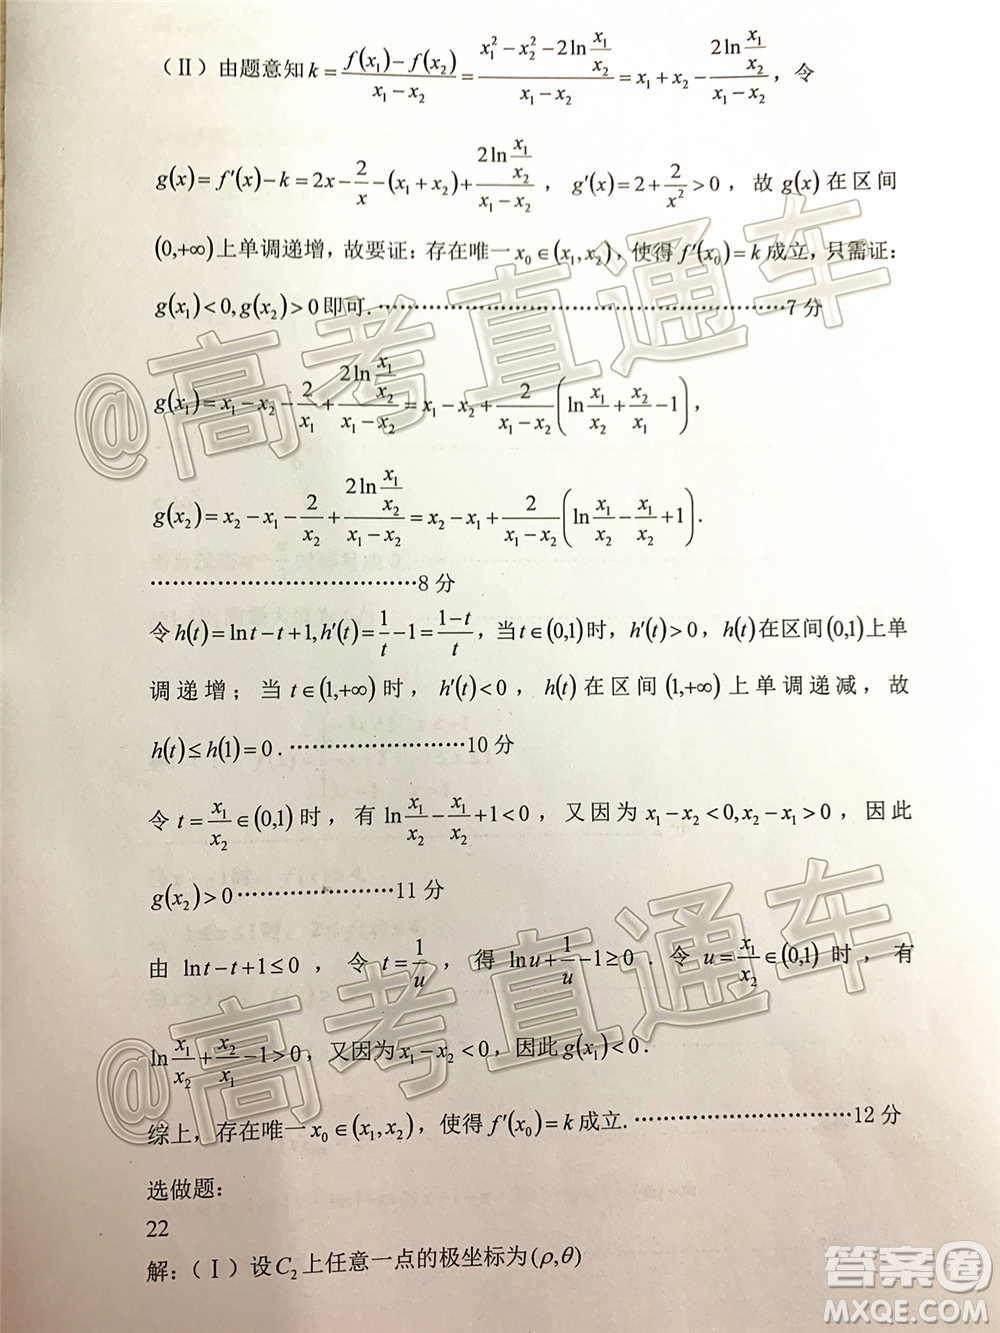 (Ⅱ)由题意知 k = \frac{f(x_1)-f(x_2)}{x_1-x_2} = \frac{x_1^2-x_2^2-2\ln\frac{x_1}{x_2}}{x_1-x_2} = x_1+x_2-\frac{2\ln\frac{x_1}{x_2}}{x_1-x_2},令
g(x)=f'(x)-k=2x-\frac{2}{x}-(x_1+x_2)+\frac{2\ln\frac{x_1}{x_2}}{x_1-x_2}, g'(x)=2+\frac{2}{x^2}>0,故g(x)在区间
(0,+∞)上单调递增,故要证:存在唯一x_0∈(x_1,x_2),使得f'(x_0)=k成立,只需证:
g(x_1)<0,g(x_2)>0即可.………………………………………………7分
g(x_1)=x_1-x_2-\frac{2}{x_1}+\frac{2\ln\frac{x_1}{x_2}}{x_1-x_2}=x_1-x_2+\frac{2}{x_1-x_2}\left(\ln\frac{x_1}{x_2}+\frac{x_2}{x_1}-1\right),
g(x_2)=x_2-x_1-\frac{2}{x_2}+\frac{2\ln\frac{x_1}{x_2}}{x_1-x_2}=x_2-x_1+\frac{2}{x_1-x_2}\left(\ln\frac{x_1}{x_2}-\frac{x_1}{x_2}+1\right).
………………………………8分
令h(t)=\ln t-t+1,h'(t)=\frac{1}{t}-1=\frac{1-t}{t},当t∈(0,1)时,h'(t)>0,h(t)在区间(0,1)上单
调递增;当t∈(1,+∞)时,h'(t)<0,h(t)在区间(1,+∞)上单调递减,故
h(t)≤h(1)=0.……………………10分
令t=\frac{x_1}{x_2}∈(0,1)时,有\ln\frac{x_1}{x_2}-\frac{x_1}{x_2}+1<0,又因为x_1-x_2<0,x_2-x_1>0,因此
g(x_2)>0…………………11分
由\ln t-t+1≤0,令t=\frac{1}{u},得\ln u+\frac{1}{u}-1≥0.令u=\frac{x_1}{x_2}∈(0,1)时,有
\ln\frac{x_1}{x_2}+\frac{x_2}{x_1}-1>0,又因为x_1-x_2<0,因此g(x_1)<0.
综上,存在唯一x_0∈(x_1,x_2),使得f'(x_0)=k成立.…………………………12分
选做题:
22
解:(Ⅰ)设C_2上任意一点的极坐标为(ρ,θ)
@高考直通车
@高考直通车
答案圈
MXQE.COM